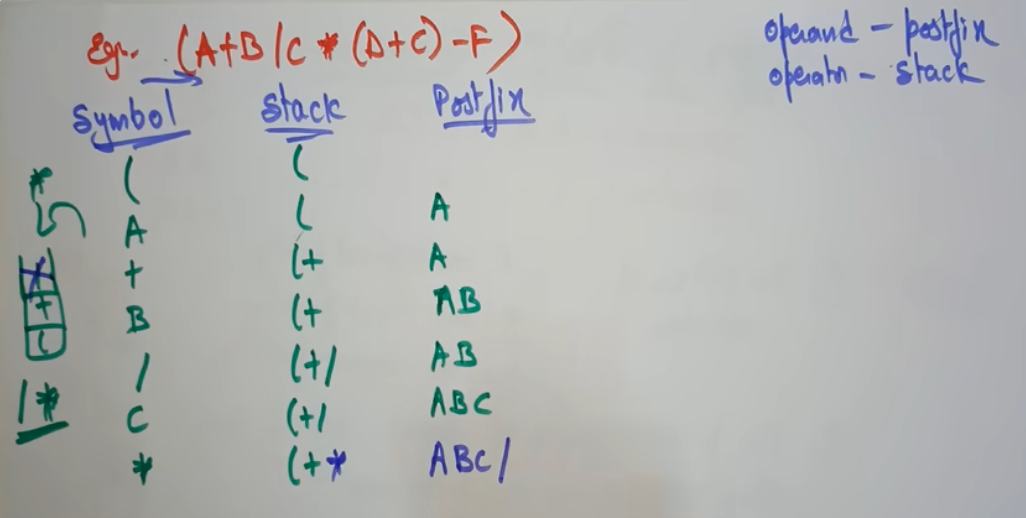 Eg:- (A+B/C * (D+C) -F)
operand - postfix
operator - stack
Symbol Stack Postfix
( (
A ( A
+ (+ A
B (+ AB
/ (+/ AB
C (+/ ABC
* (+* ABC/
*
+
(
/*